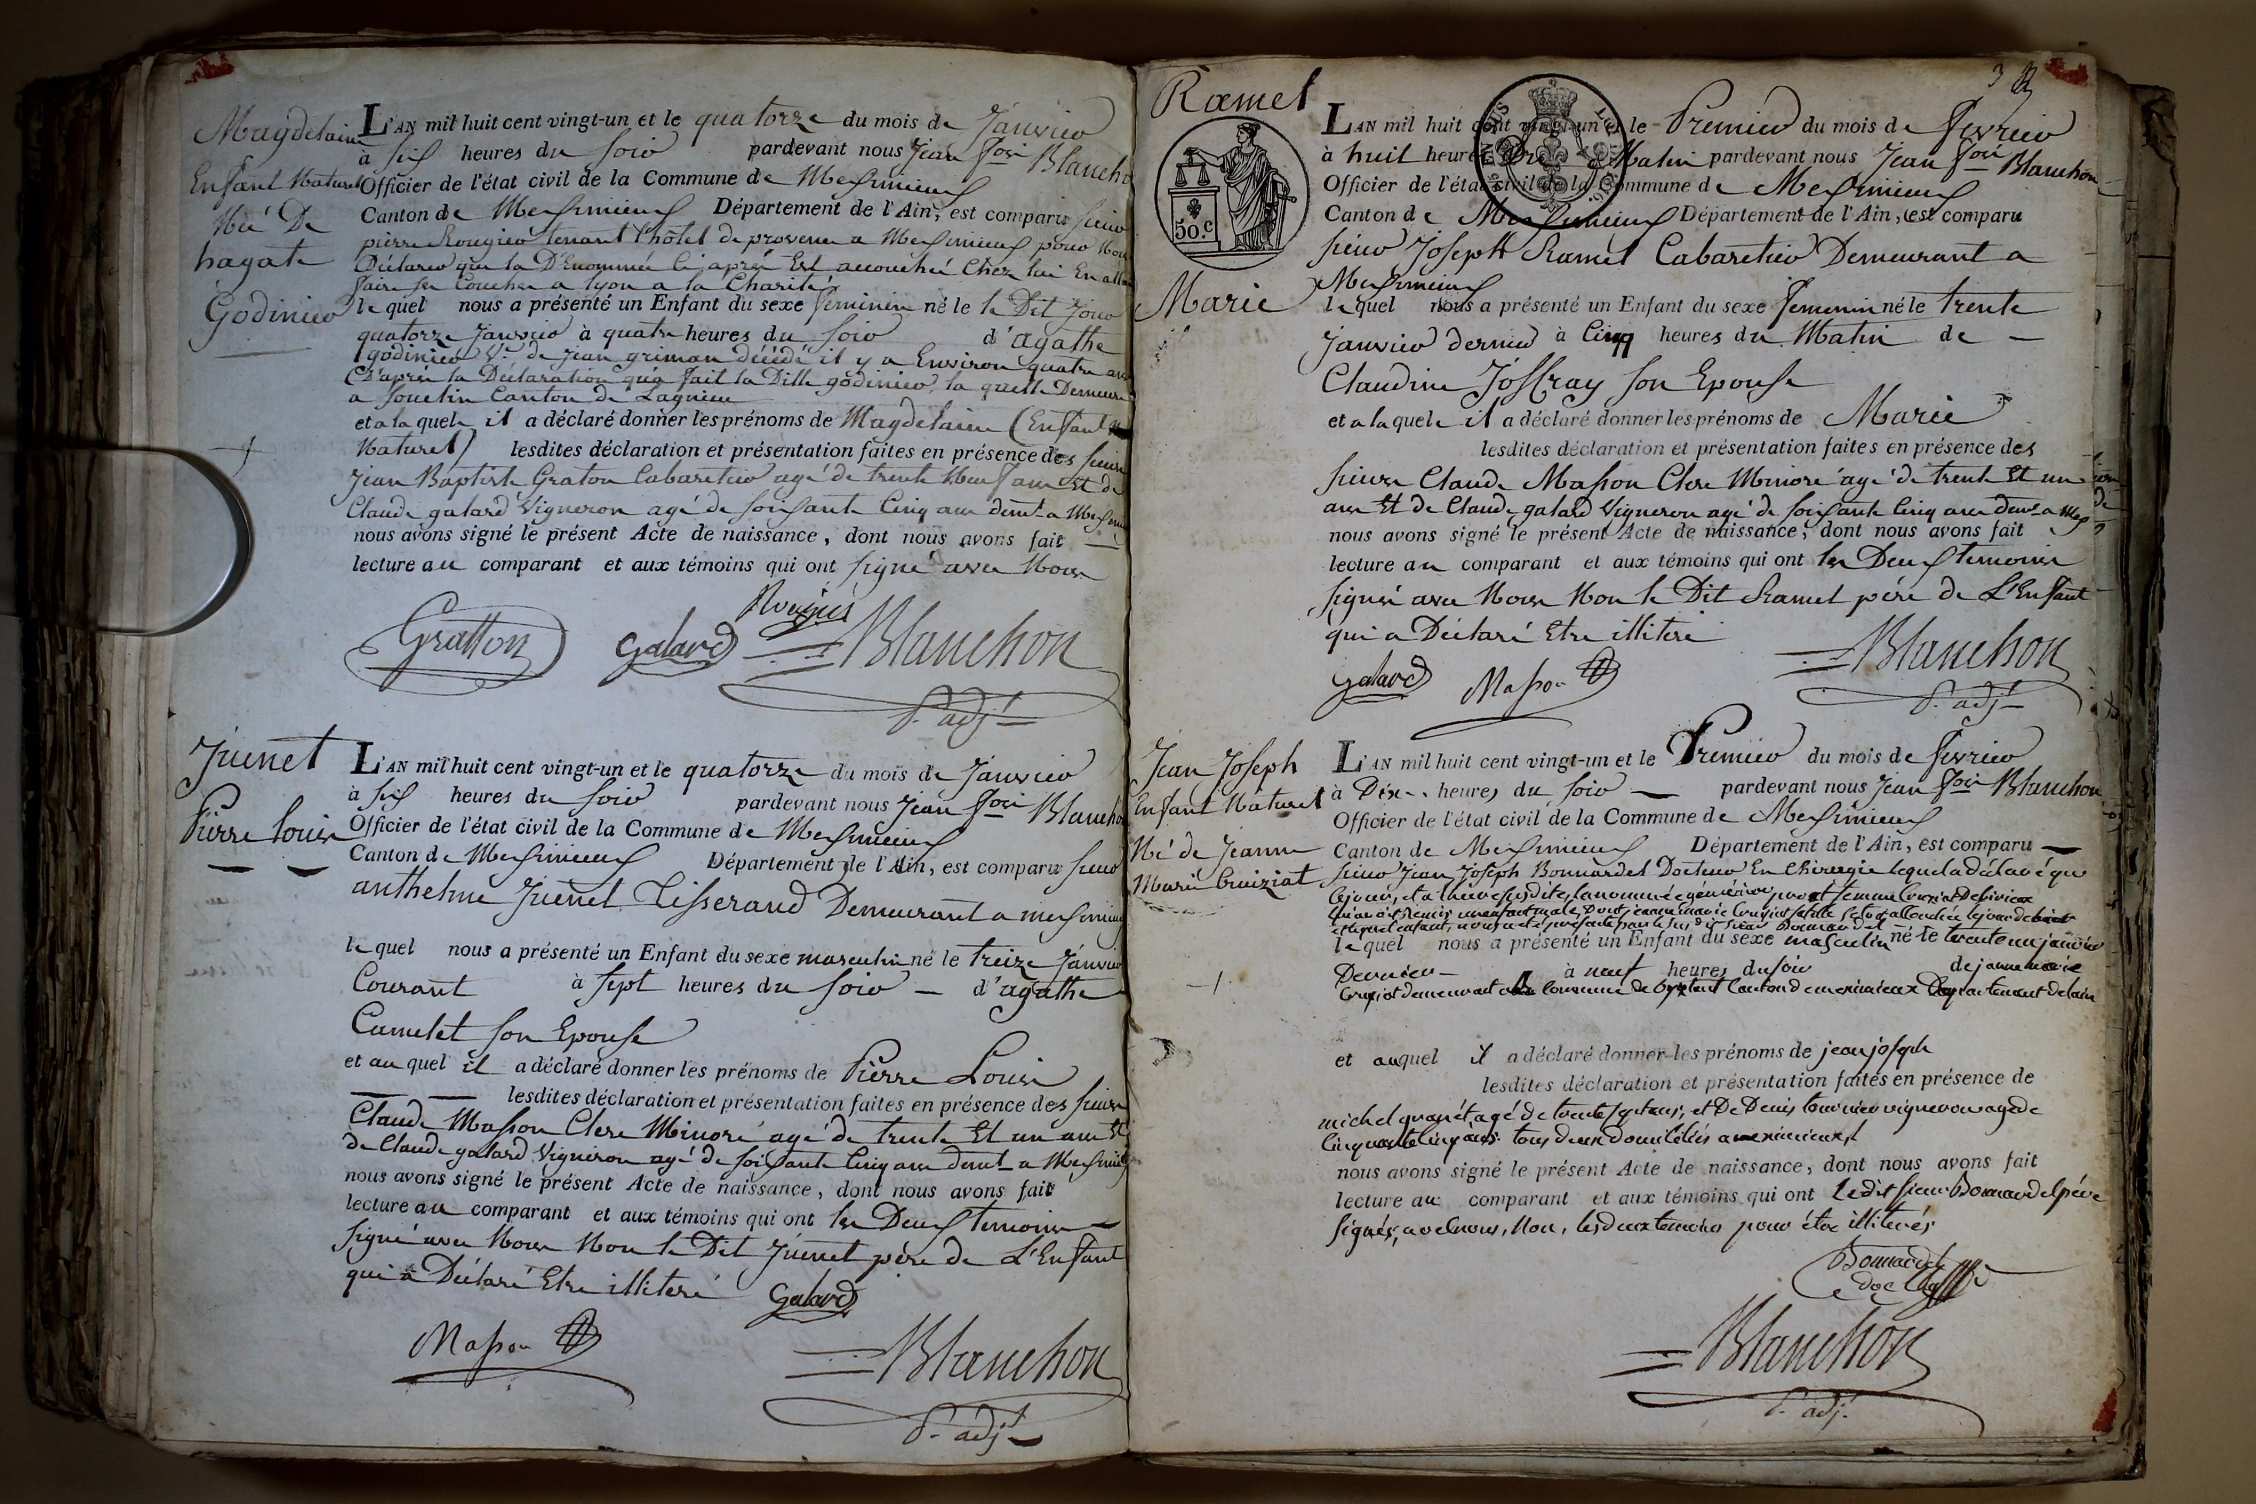 Magdelaine
Enfant Naturel
Née De
hagate
Godinier
L'AN mil huit cent vingt-un et le quatorze du mois de Janvier
à six heures du soir pardevant nous Jean Fois Blanchon
Officier de l'état civil de la Commune de Meximieux
Canton de Meximieux Département de l'Ain, est comparu sieur
pierre Rougier tenant l'hôtel de provence a Meximieux pour Nous
Déclarer que la D'Enommée Ci après Est accouchée Chez lui En allant
faire ses Couches a lyon a la Charité
lequel nous a présenté un Enfant du sexe féminin né le le Dit Jour
quatorze Janvier à quatre heures du soir d'agathe
godinier Ve de Jean griman décédé il y a Environ quatre ans
(D'après la Déclaration qu'a fait la Ditte godinier, la quelle Demeure
a Souclin Canton de Lagnieu
et a la quelle il a déclaré donner les prénoms de Magdelaine (Enfant
Naturel) lesdites déclaration et présentation faites en présence des sieurs
Jean Baptiste Graton Cabaretier agé de trente Neuf ans Et de
Claude galard Vigneron agé de soixante Cinq ans demt a Meximieux
nous avons signé le présent Acte de naissance, dont nous avons fait
lecture au comparant et aux témoins qui ont signé avec Nous
Rougier
Gratton Galard Blanchon
P. adjt
Juenet
Pierre Louis
L'AN mil huit cent vingt-un et le quatorze du mois de Janvier
à six heures du soir pardevant nous Jean Fois Blanchon
Officier de l'état civil de la Commune de Meximieux
Canton de Meximieux Département de l'Ain, est comparu sieur
anthelme Juenet Tisserand Demeurant a meximieux
lequel nous a présenté un Enfant du sexe masculin né le treize Janvier
Courant à sept heures du soir d'agathe
Camelet son Epouse
et au quel il a déclaré donner les prénoms de Pierre Louis
lesdites déclaration et présentation faites en présence des sieurs
Claude Masson Clerc Minoré agé de trente Et un ans Et
de Claude galard Vigneron agé de soixante Cinq ans demt a Meximieux
nous avons signé le présent Acte de naissance, dont nous avons fait
lecture au comparant et aux témoins qui ont les Deux temoins
signé avec Nous Non le Dit Juenet père de L'Enfant
qui a Déclaré Etre illiteré
Galard
Masson
Blanchon
P. adjt
Ramel
50.c
Marie
L'AN mil huit cent vingt-un et le Premier du mois de fevrier
à huit heures du Matin pardevant nous Jean Fois Blanchon
Officier de l'état civil de la Commune de Meximieux
Canton de Meximieux Département de l'Ain, est comparu
sieur Joseph Ramel Cabaretier Demeurant a
Meximieux
lequel nous a présenté un Enfant du sexe femenin né le trente
Janvier dernier à Cinq heures du Matin de
Claudine Joffray son Epouse
et a la quelle il a déclaré donner les prénoms de Marie
lesdites déclaration et présentation faites en présence des
sieurs Claude Masson Clerc Minoré agé de trente Et un
ans Et de Claude galard Vigneron agé de soixante Cinq ans demt a Mex
nous avons signé le présent Acte de naissance, dont nous avons fait
lecture au comparant et aux témoins qui ont les Deux temoins
signés avec Nous Non le Dit Ramel père de L'Enfant
qui a Déclaré Etre illiteré
Blanchon
Galard Masson
P. adjt
Jean Joseph
Enfant Naturel
Né de Jeanne
Marie Cruiziat
L'AN mil huit cent vingt-un et le Premier du mois de fevrier
à Dix heures du soir pardevant nous Jean Fois Blanchon
Officier de l'état civil de la Commune de Meximieux
Canton de Meximieux Département de l'Ain, est comparu
sieur Jean Joseph Bonnardel Docteur En Chirurgie lequel a déclaré que
lequel nous a présenté un Enfant du sexe masculin né le trente un janvier
Dernier à neuf heures du soir de jeanne marie
et auquel il a déclaré donner les prénoms de jean joseph
lesdites déclaration et présentation faites en présence de
michel agé de trente sept ans, et De Denis tournier vigneron agé de
Cinquante Cinq ans tous deux domiciliés a meximieux
nous avons signé le présent Acte de naissance, dont nous avons fait
lecture au comparant et aux témoins qui ont Ledit sieur Bonnardel père
signés, avec nous, Non, les deux temoins pour être illiterés
Bonnardel
Blanchon
P. adjt